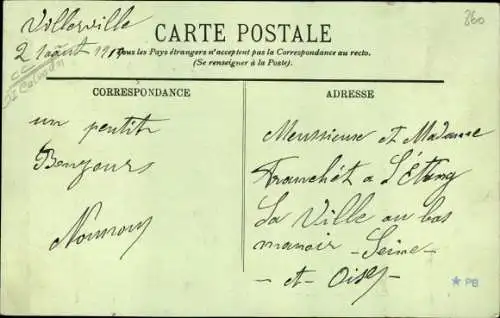 Villerville
2 août 19
860
CARTE POSTALE
Tous les Pays étrangers n'acceptent pas la Correspondance au recto.
(Se renseigner à la Poste).
CORRESPONDANCE
ADRESSE
un pentit
Bonjours
Meussieuse et Madame
Franchet a L'Etang
La Ville au bas
manoir - Seine -
- et - Oise -
* PB